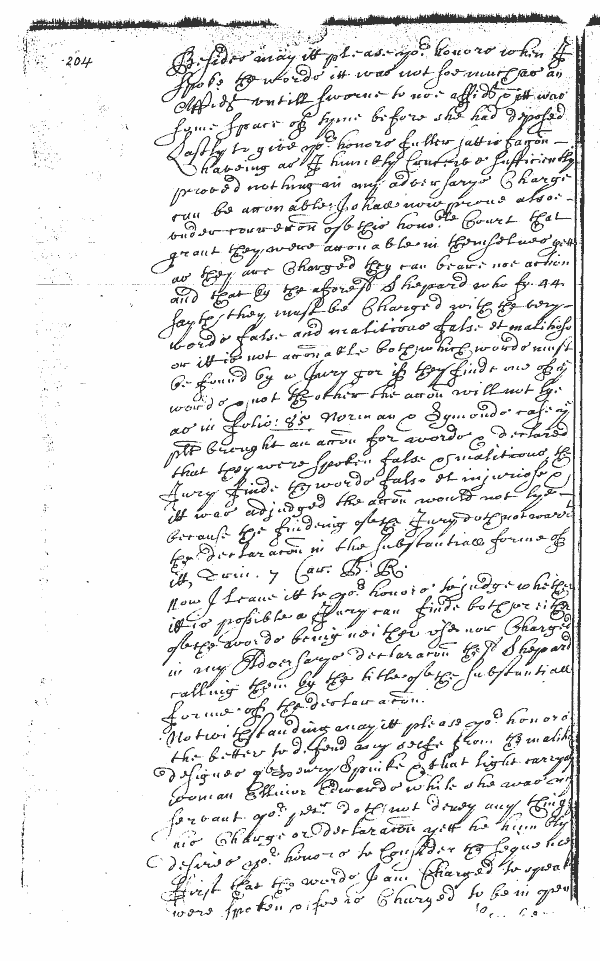 204
Besides may itt please yor honors when I
spoke the words itt was not soe much as an
Affidt untill sworne to noe affidt & itt was
some space of tyme before she had deposed
Lastly to give yor honors fuller sattisfaccon
Haveing as I humbly Conceive sufficiently
proved nothing in my adversarys Charge
can be acconable I shall now prove alsoe
under correccon of this honoble Court that
grant they were acconable in themselves yett
as they are Charged they can beare noe action
and that by the aforesd Shepard who fo: 44
sayth they must be Charged with the very
words false and malitious false et malitiose
or itt is not acconable both which words must
be found by a Jury for if they finde one of ye
words & not the other the accon will not lye
as in folio: 85 Norman & Symonds case ye
plt brought an accon for words & declared
that they were spoken false & malitious the
Jury finde the words falso et injuriose &
itt was adjudged the accon would not lye
because the finding of the Jury doth not warrt
the declaracon in the substantiall forme of
itt, Trin. 7 Car. B. R.
Now I leave itt to yor honors to judge whether
itt is possible a Jury can finde both or either
of the words being neither of them now Charged
in my Adversarys declaracon the sd Shepard
calling them by the title of the substantiall
forme of the declaracon.
Notwithstanding may itt please yor honors
the better to defend my selfe from the malitious
designes of Henry Spinke & that light carryage
woman Ellinor Edwards while she was my
servant yor petr doth not deny any thing
his Charge or declaracon yett he humbly
desires yor honors to Consider the sequence
First that the words I am Charged to speak
were spoken & soe is Charged to be in open